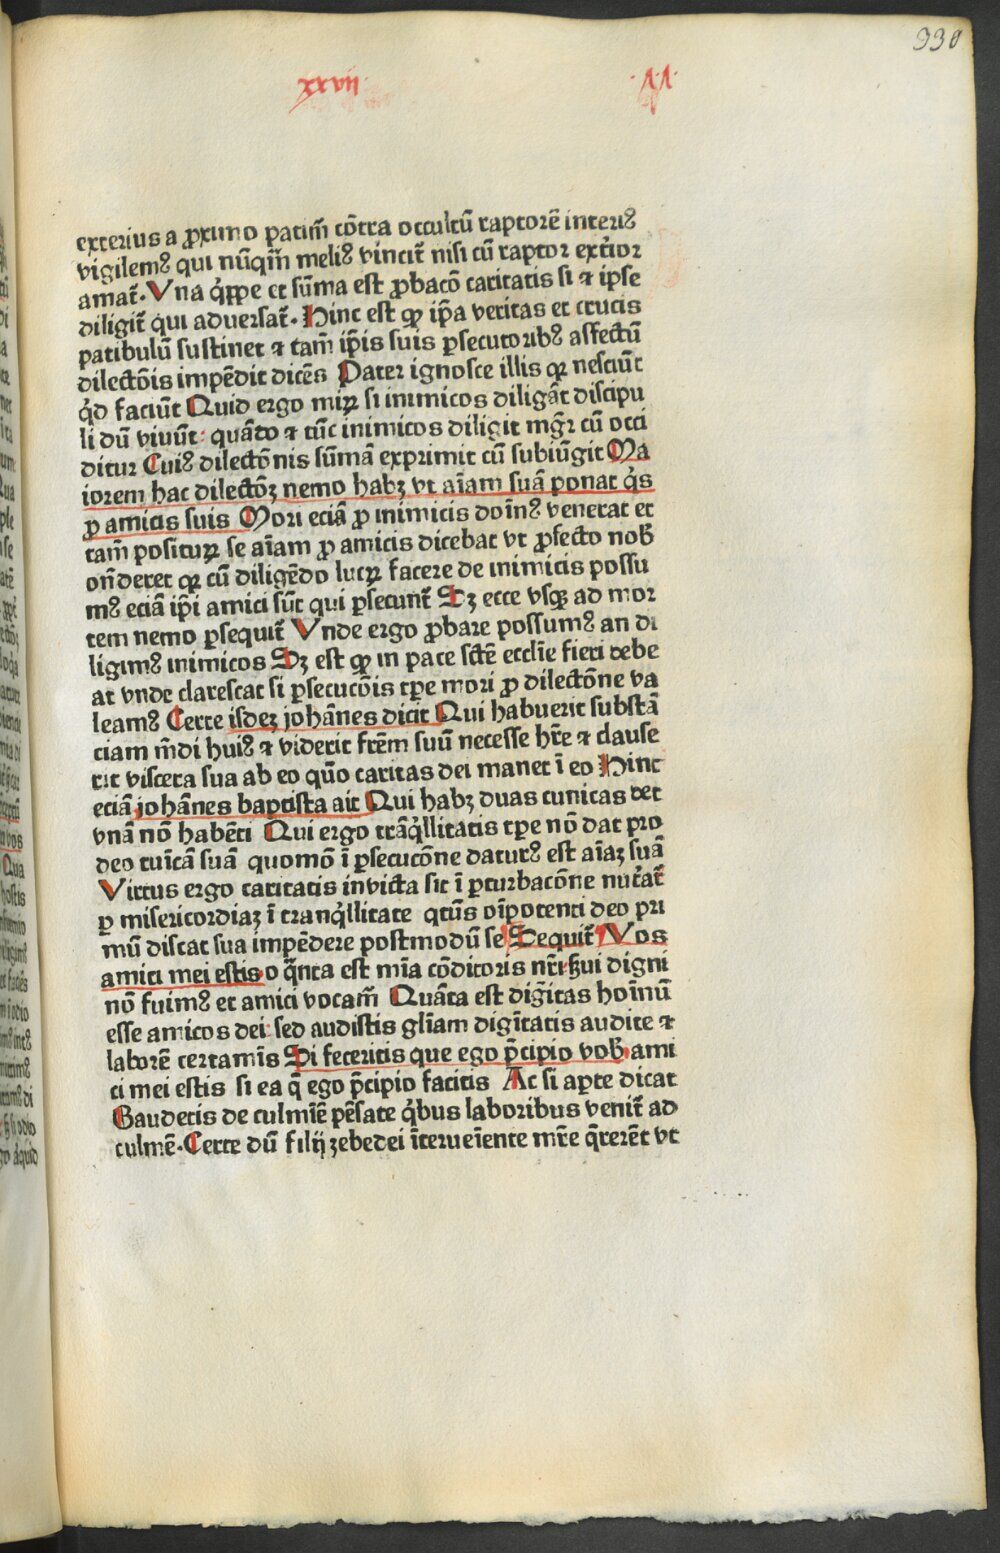 330
xxvii
exterius a ꝓximo patim̄ cōtra occultū raptorē interiꝰ
vigilemꝰ qui nūqm̄ meliꝰ vincit᷑ nisi cū raptor ext᷑ior
amat᷑. Una q̇ppe et sūma est ꝓbacō caritatis si ⁊ ipse
diligit᷑ qui aduersat᷑. Hinc est ꝙ ip̄a veritas et crucis
patibulū sustinet ⁊ tam̄ ip̄is suis ꝑsecutoribꝰ affectū
dilectōis impēdit dicēs Pater ignosce illis qꝛ nesciūt
q̇d faciūt Quid ergo miꝝ si inimicos diligāt discipu
li dū viuūt: quādo ⁊ tūc inimicos diligit mgr̄ cū occi
ditur Cuiꝰ dilectōnis sūmā exprimit cū subiūgit Ma
iorem hac dilectōꝫ nemo habꝫ vt aīam suā ponat q̇s
ꝓ amicis suis Mori eciā ꝓ inimicis doīnꝰ venerat et
tam̄ posituꝝ se aīam ꝓ amicis dicebat vt ꝓfecto nob̄
on̄deret qꝛ cū diligēdo lucꝝ facere de inimicis possu
mꝰ eciā ip̄i amici sūt qui ꝑsecunt᷑ Sꝫ ecce vsqꝫ ad mor
tem nemo ꝑsequit᷑ Unde ergo ꝓbare possumꝰ an di
ligimꝰ inimicos Sꝫ est ꝙ in pace sct̄e ecclīe fieri debe
at vnde clarescat si ꝑsecucōis tꝑe mori ꝓ dilectōne va
leamꝰ Certe isdeꝫ johānes dicit Qui habuerit substā
ciam m̄di huiꝰ ⁊ viderit frēm suū necesse hr̄e ⁊ clause
rit viscera sua ab eo quō caritas dei manet ī eo Hinc
eciā johānes baptista ait Qui habꝫ duas tunicas det
vnā nō habēti Qui ergo trāq̇llitatis tꝑe nō dat pro
deo tuīcā suā quomō ī ꝑsecucōne daturꝰ est aīaꝫ suā
Virtus ergo caritatis inuicta sit ī ꝑturbacōne nut᷑at᷑
ꝑ misericordiaꝫ ī tranq̇llitate qtūs oīpotenti deo pri
mū discat sua impēdere postmodū se Sequit᷑ Vos
amici mei estis o q̄nta est mīa cōditoris nr̄i sui digni
nō fuimꝰ et amici vocam̄ Quāta est dig̅itas hoīnū
esse amicos dei: sed audistis gl̄iam dig̅itatis audite ⁊
laborē certamīs Si feceritis que ego p̄cipio vob̄ ami
ci mei estis si ea q̄ ego p̄cipio facitis Ac si aꝑte dicat
Gaudetis de culmīe pēsate q̇bus laboribus venit᷑ ad
culmē. Certe dū filij zebedei īterueīente mr̄e q̄rerēt vt